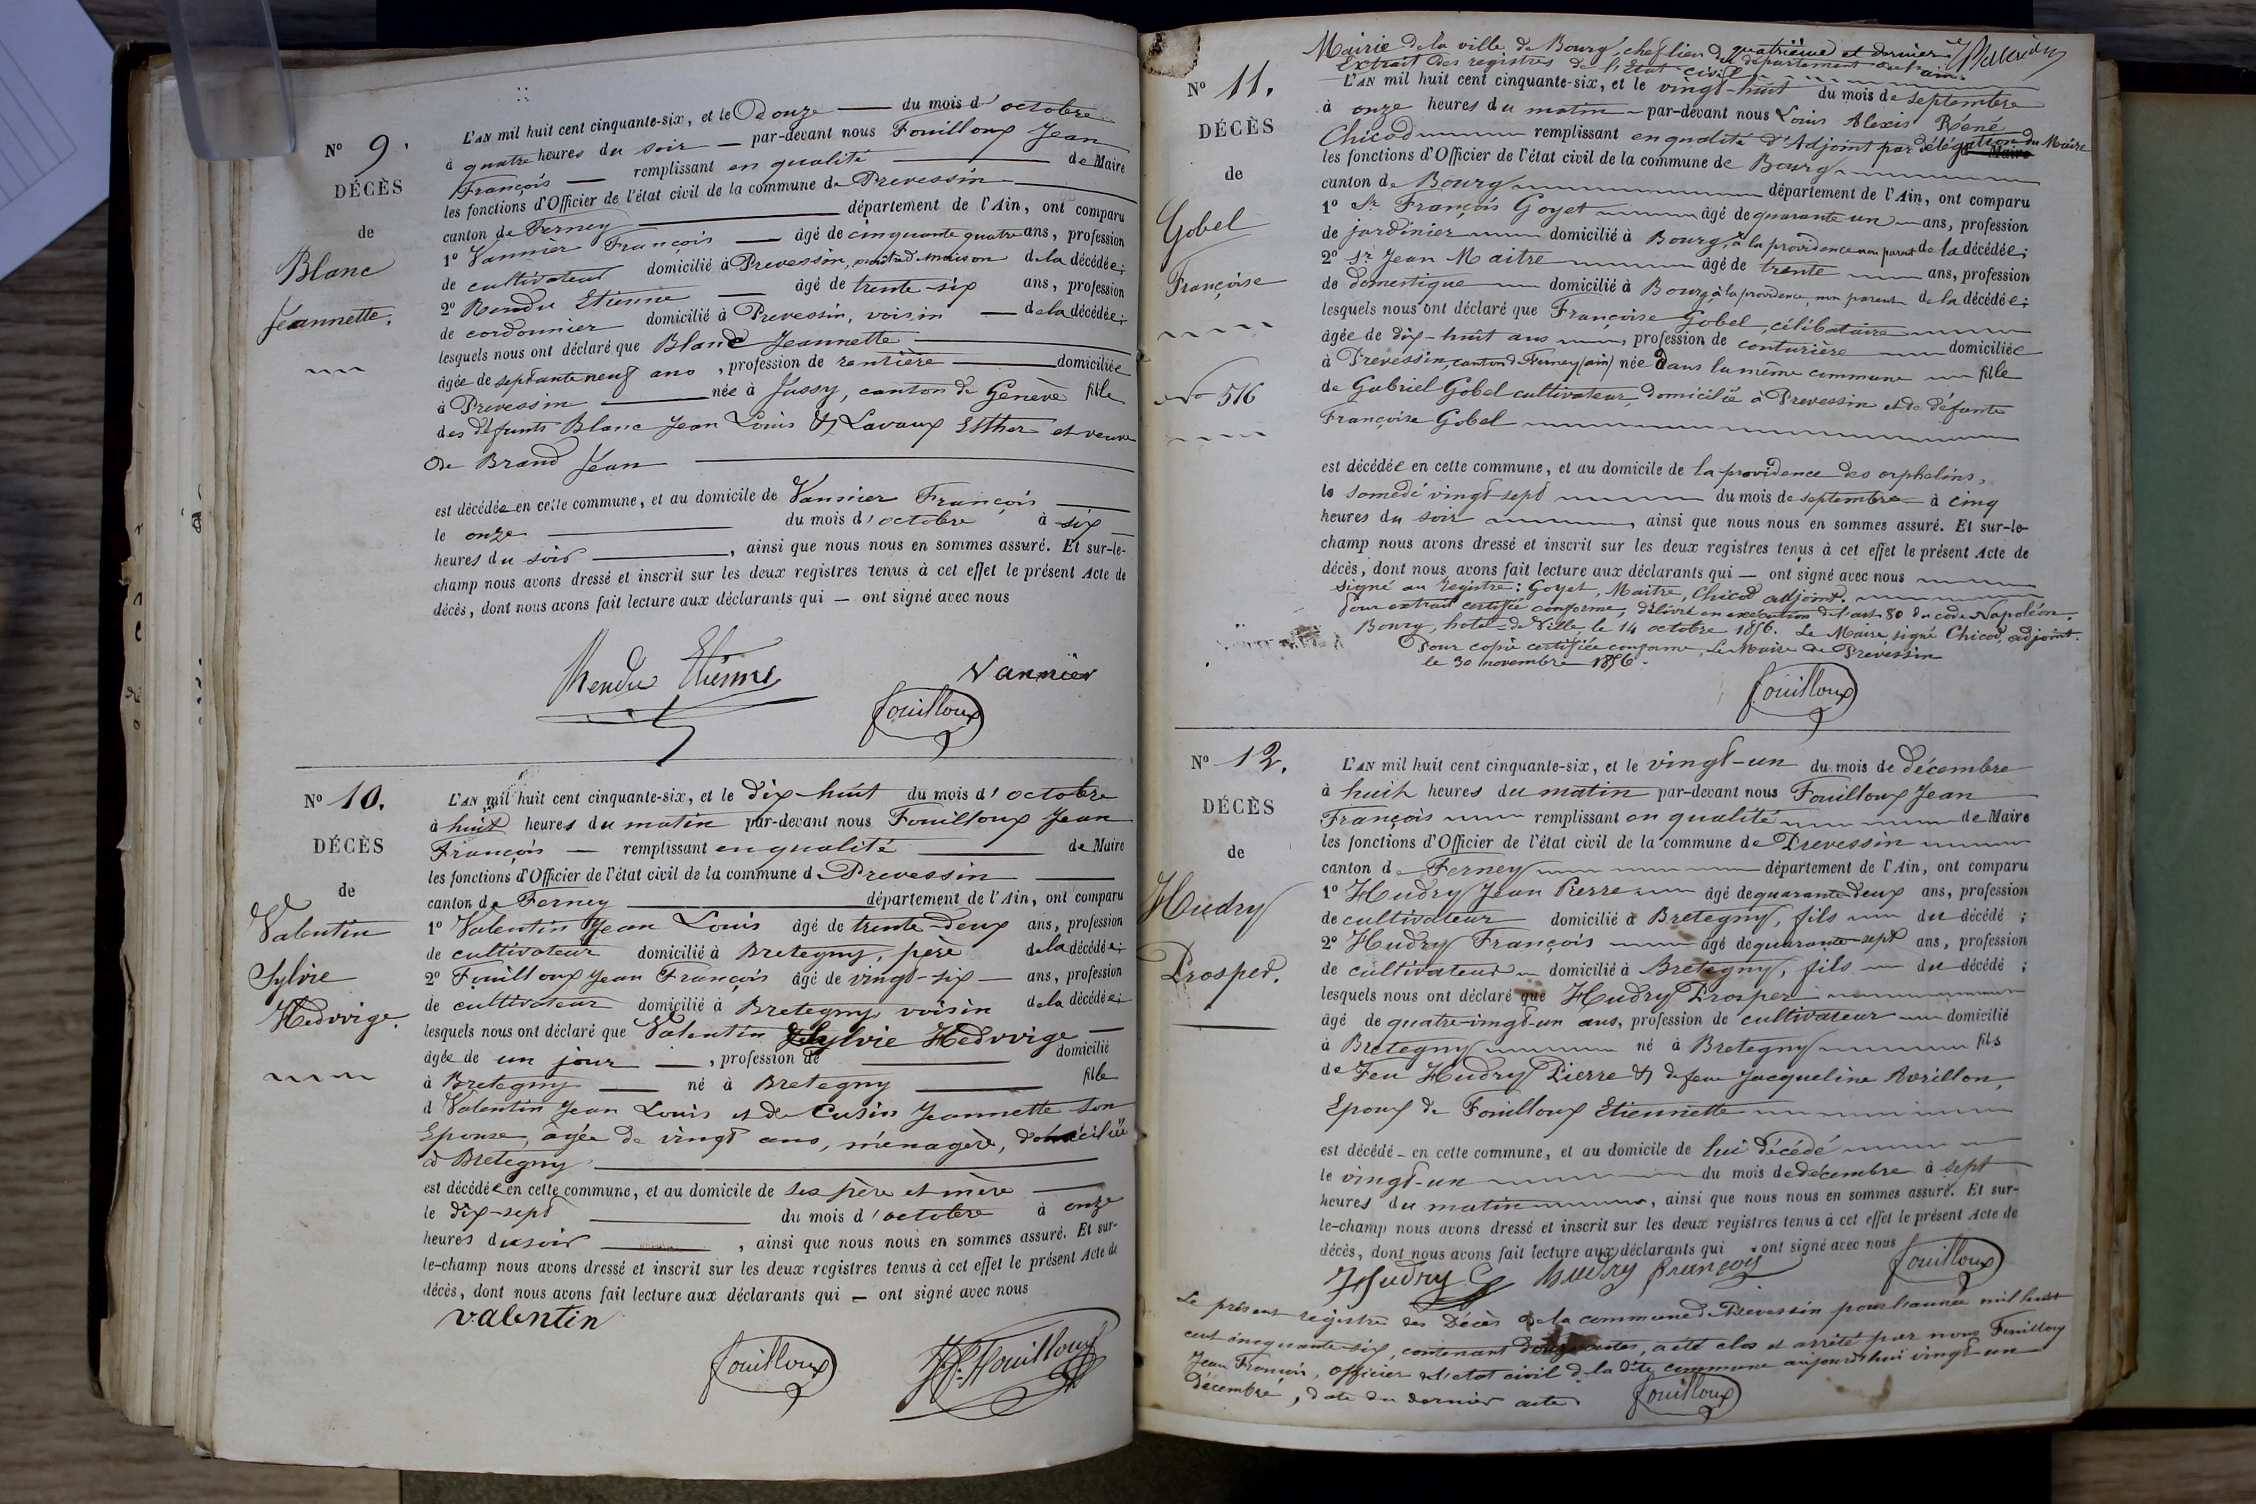 N° 9.
DÉCÈS
de
Blanc
Jeannette.
L'AN mil huit cent cinquante-six, et le Douze du mois d'octobre
à quatre heures du soir par-devant nous Fouilloux Jean
François remplissant en qualité de Maire
les fonctions d'Officier de l'état civil de la commune de Prevessin
canton de Ferney département de l'Ain, ont comparu
1° Vannier François âgé de cinquante quatre ans, profession
de cultivateur domicilié à Prevessin, maître de maison de la décédée;
2° Rendu Etienne âgé de trente-six ans, profession
de cordonnier domicilié à Prevessin, voisin de la décédée;
lesquels nous ont déclaré que Blanc Jeannette
âgée de septante neuf ans, profession de rentière domiciliée
à Prevessin née à Jussy, canton de Genève fille
des défunts Blanc Jean Louis & Lavaux Esther et veuve
de Brand Jean
est décédée en cette commune, et au domicile de Vannier François
le onze du mois d'octobre à six
heures du soir, ainsi que nous nous en sommes assuré. Et sur-le-
champ nous avons dressé et inscrit sur les deux registres tenus à cet effet le présent Acte de
décès, dont nous avons fait lecture aux déclarants qui — ont signé avec nous
Rendu Etienne
Vannier
Fouilloux
N° 10.
DÉCÈS
de
Valentin
Sylvie
Hedwige.
L'AN mil huit cent cinquante-six, et le dix-huit du mois d'octobre
à huit heures du matin par-devant nous Fouilloux Jean
François — remplissant en qualité de Maire
les fonctions d'Officier de l'état civil de la commune de Prevessin
canton de Ferney département de l'Ain, ont comparu
1° Valentin Jean Louis âgé de trente-deux ans, profession
de cultivateur domicilié à Bretegny, père de la décédée;
2° Fouilloux Jean François âgé de vingt-six — ans, profession
de cultivateur domicilié à Bretegny voisin de la décédée;
lesquels nous ont déclaré que Valentin Sylvie Hedwige
âgée de un jour, profession de domicilié
à Bretegny né à Bretegny fille
d Valentin Jean Louis et de Cusin Jeannette son
Epouse, âgée de vingt ans, ménagère, domiciliée
à Bretegny
est décédée en cette commune, et au domicile de ses père et mère
le dix-sept du mois d'octobre à onze
heures du soir, ainsi que nous nous en sommes assuré. Et sur-
le-champ nous avons dressé et inscrit sur les deux registres tenus à cet effet le présent Acte de
décès, dont nous avons fait lecture aux déclarants qui — ont signé avec nous
valentin
Fouilloux
J.F. Fouilloux
Mairie de la ville de Bourg, chef lieu du département de l'ain. quatrième et dernier
Extrait des registres de l'Etat civil
N° 11.
DÉCÈS
de
Gobel
Françoise
N° 516
L'AN mil huit cent cinquante-six, et le vingt-huit du mois de septembre
à onze heures du matin — par-devant nous Louis Alexis Réné
Chicod remplissant en qualité d'Adjoint par délégation du Maire
les fonctions d'Officier de l'état civil de la commune de Bourg
canton de Bourg département de l'Ain, ont comparu
1° Sr François Goyet âgé de quarante un ans, profession
de jardinier domicilié à Bourg, à la providence non parent de la décédée;
2° Sr Jean Maitre âgé de trente ans, profession
de domestique domicilié à Bourg, à la providence, non parent de la décédée;
lesquels nous ont déclaré que Françoise Gobel, célibataire
âgée de dix-huit ans, profession de couturière domiciliée
à Prevessin, canton de Ferney (ain) née dans la même commune fille
de Gabriel Gobel cultivateur, domicilié à Prevessin et de défunte
Françoise Gobel
est décédée en cette commune, et au domicile de la providence des orphelins,
le samedi vingt-sept du mois de septembre à cinq
heures du soir, ainsi que nous nous en sommes assuré. Et sur-le-
champ nous avons dressé et inscrit sur les deux registres tenus à cet effet le présent Acte de
décès, dont nous avons fait lecture aux déclarants qui — ont signé avec nous
signé au registre: Goyet, Maitre, Chicod adjoint.
Pour extrait certifié conforme, délivré en exécution de l'art. 80 du code Napoléon.
Bourg, hotel-de-Ville, le 14 octobre 1856. Le Maire, signé Chicod, adjoint.
Pour copie certifiée conforme, Le Maire de Prevessin
le 30 novembre 1856.
Fouilloux
N° 12.
DÉCÈS
de
Hudry
Prosper.
L'AN mil huit cent cinquante-six, et le vingt-un du mois de décembre
à huit heures du matin par-devant nous Fouilloux Jean
François remplissant en qualité de Maire
les fonctions d'Officier de l'état civil de la commune de Prevessin
canton de Ferney département de l'Ain, ont comparu
1° Hudry Jean Pierre âgé de quarante deux ans, profession
de cultivateur domicilié à Bretegny, fils du décédé;
2° Hudry François âgé de quarante-sept ans, profession
de cultivateur domicilié à Bretegny, fils du décédé;
lesquels nous ont déclaré que Hudry Prosper
âgé de quatre-vingt-un ans, profession de cultivateur domicilié
à Bretegny né à Bretegny fils
de Feu Hudry Pierre & de feue Jacqueline Avrillon,
Epoux de Fouilloux Etiennette
est décédé — en cette commune, et au domicile de lui décédé
le vingt-un du mois de décembre à sept
heures du matin, ainsi que nous nous en sommes assuré. Et sur-
le-champ nous avons dressé et inscrit sur les deux registres tenus à cet effet le présent Acte de
décès, dont nous avons fait lecture aux déclarants qui ont signé avec nous
Hudry hudry françois Fouilloux
Le présent registre des Décès de la commune de Prevessin pour l'année mil huit
cent cinquante-six, contenant douze actes, a été clos et arrêté par nous Fouilloux
Jean François, officier de l'état civil de la dite commune aujourd'hui vingt un
décembre, date du dernier acte.
Fouilloux